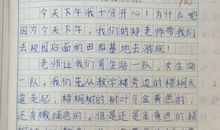 今天下午，我十分开心！为什么呢？
因为今天下午，我们的郑老师带我们
去校园后面的田园基地去游玩！
老师让我们男生站一队，女生站
一队，我们先从教学楼旁边的梧桐大
道走起，梧桐树的树叶有金黄色的，
还有嫩绿色的，但是还是金黄色的